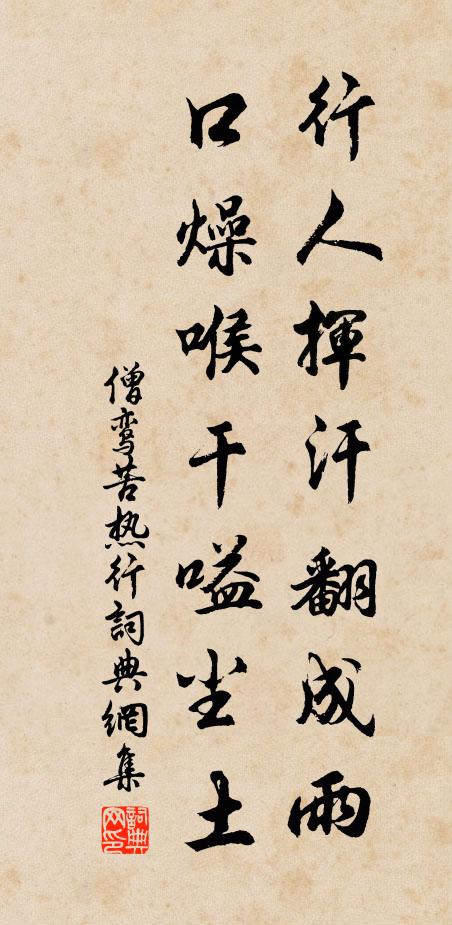 行人揮汗翻成雨
口燥喉干嗌尘土
僧鸾苦热行詞典網集
詞典网印